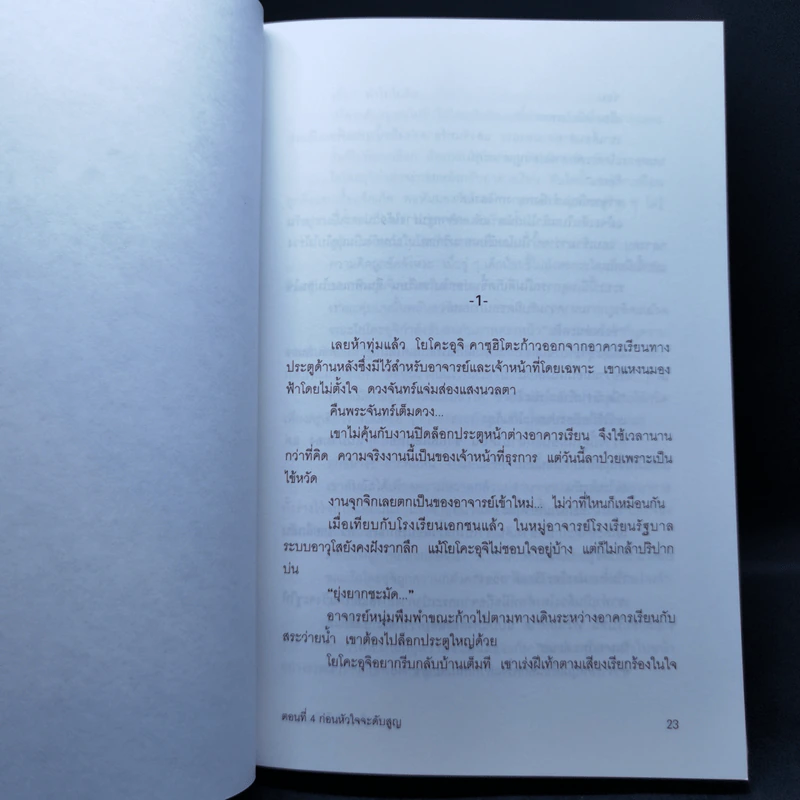 -1-
เลยห้าทุ่มแล้ว โยโคะอุจิ คาซุฮิโตะก้าวออกจากอาคารเรียนทาง
ประตูด้านหลังซึ่งมีไว้สำหรับอาจารย์และเจ้าหน้าที่โดยเฉพาะ เขาแหงนมอง
ฟ้าโดยไม่ตั้งใจ ดวงจันทร์แจ่มส่องแสงนวลตา
คืนพระจันทร์เต็มดวง...
เขาไม่คุ้นกับงานปิดล็อกประตูหน้าต่างอาคารเรียน จึงใช้เวลานาน
กว่าที่คิด ความจริงงานนี้เป็นของเจ้าหน้าที่ธุรการ แต่วันนี้ลาป่วยเพราะเป็น
ไข้หวัด
งานจุกจิกเลยตกเป็นของอาจารย์เข้าใหม่... ไม่ว่าที่ไหนก็เหมือนกัน
เมื่อเทียบกับโรงเรียนเอกชนแล้ว ในหมู่อาจารย์โรงเรียนรัฐบาล
ระบบอาวุโสยังคงฝังรากลึก แม้โยโคะอุจิไม่ชอบใจอยู่บ้าง แต่ก็ไม่กล้าปริปาก
บ่น
“ยุ่งยากชะมัด...”
อาจารย์หนุ่มพึมพำขณะก้าวไปตามทางเดินระหว่างอาคารเรียนกับ
สระว่ายน้ำ เขาต้องไปล็อกประตูใหญ่ด้วย
โยโคะอุจิอยากรีบกลับบ้านเต็มที เขาเร่งฝีเท้าตามเสียงเรียกร้องในใจ
ตอนที่ 4 ก่อนหัวใจจะดับสูญ
23